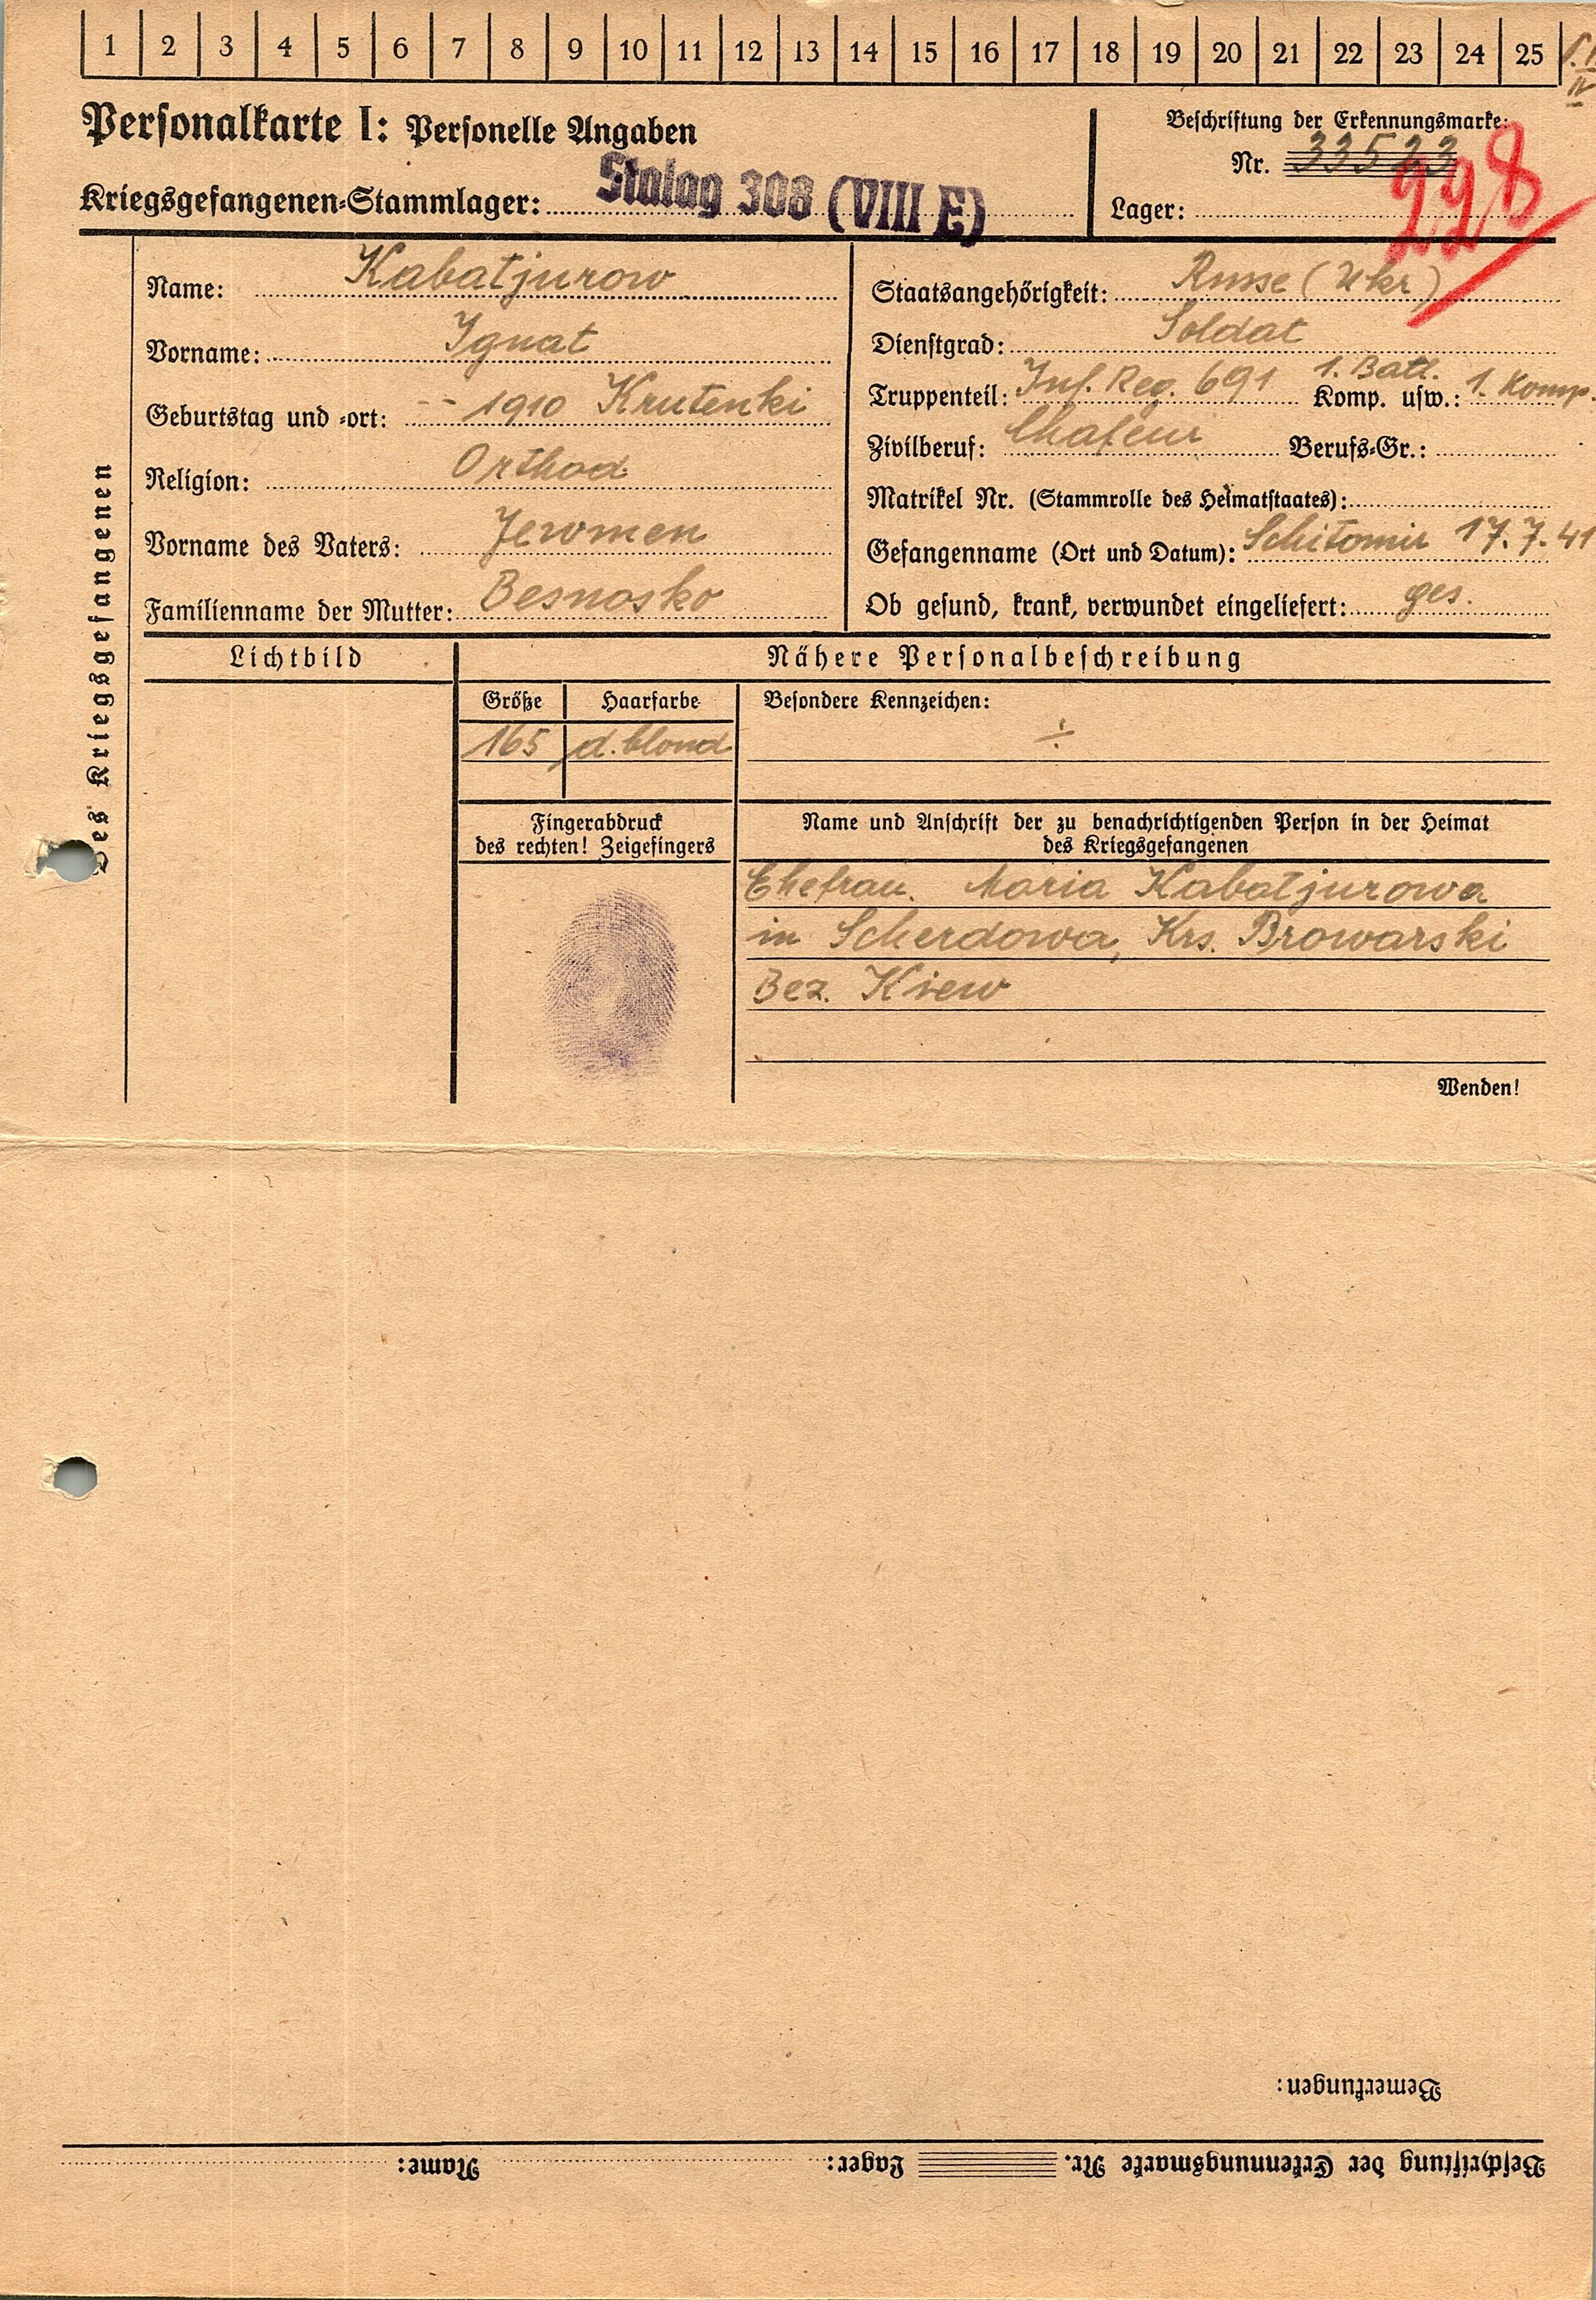 1 2 3 4 5 6 7 8 9 10 11 12 13 14 15 16 17 18 19 20 21 22 23 24 25
Personalkarte I: Personelle Angaben
Beschriftung der Erkennungsmarke:
Nr. 33523
228
Kriegsgefangenen-Stammlager: Stalag 308 (VIII E)
Lager:
Des Kriegsgefangenen
Name: Kabatjurow
Vorname: Ignat
Geburtstag und -ort: -- 1910 Krutenki
Religion: Orthod
Vorname des Vaters: Jeromen
Familienname der Mutter: Besnosko
Staatsangehörigkeit: Russe (Ukr)
Dienstgrad: Soldat
Truppenteil: Inf. Reg. 691 1. Batl. Komp. usw.: 1. Komp.
Zivilberuf: Chafeur Berufs-Gr.:
Matrikel Nr. (Stammrolle des Heimatstaates):
Gefangenname (Ort und Datum): Schitomir 17.7.41
Ob gesund, krank, verwundet eingeliefert: ges.
Lichtbild
Nähere Personalbeschreibung
Größe Haarfarbe
165 d. blond
Besondere Kennzeichen:
÷
Fingerabdruck
des rechten! Zeigefingers
Name und Anschrift der zu benachrichtigenden Person in der Heimat
des Kriegsgefangenen
Ehefrau. Maria Kabatjurowa
in Scherdowa, Krs. Browarski
Bez. Kiew
Wenden!
Bemerkungen:
Beschriftung der Erkennungsmarke Nr. Lager: Name: